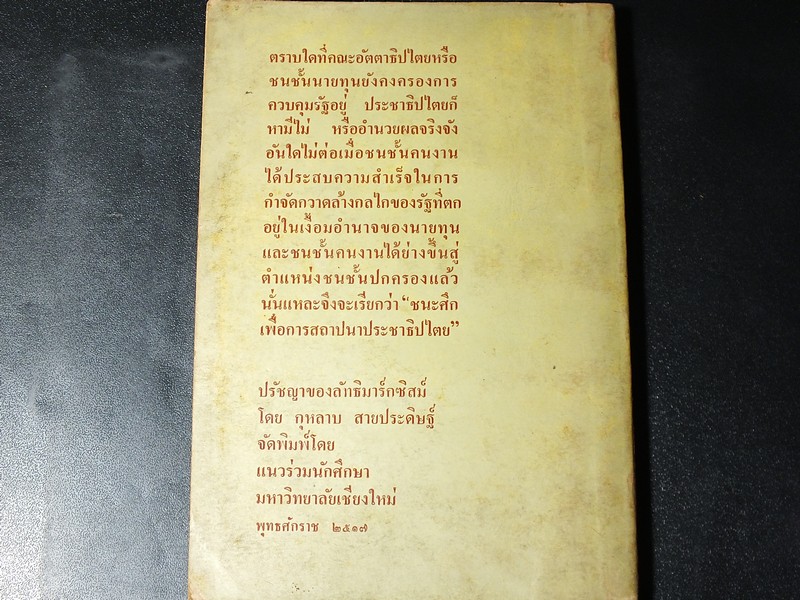 ตราบใดที่คณะอัตตาธิปไตยหรือ
ชนชั้นนายทุนยังคงครองการ
ควบคุมรัฐอยู่ ประชาธิปไตยก็
หามีไม่ หรืออำนวยผลจริงจัง
อันใดไม่ต่อเมื่อชนชั้นคนงาน
ได้ประสบความสำเร็จในการ
กำจัดกวาดล้างกลไกของรัฐที่ตก
อยู่ในเงื้อมอำนาจของนายทุน
และชนชั้นคนงานได้ย่างขึ้นสู่
ตำแหน่งชนชั้นปกครองแล้ว
นั่นแหละจึงจะเรียกว่า “ชนะศึก
เพื่อการสถาปนาประชาธิปไตย”
ปรัชญาของลัทธิมาร์กซิสม์
โดย กุหลาบ สายประดิษฐ์
จัดพิมพ์โดย
แนวร่วมนักศึกษา
มหาวิทยาลัยเชียงใหม่
พุทธศักราช ๒๕๑๗